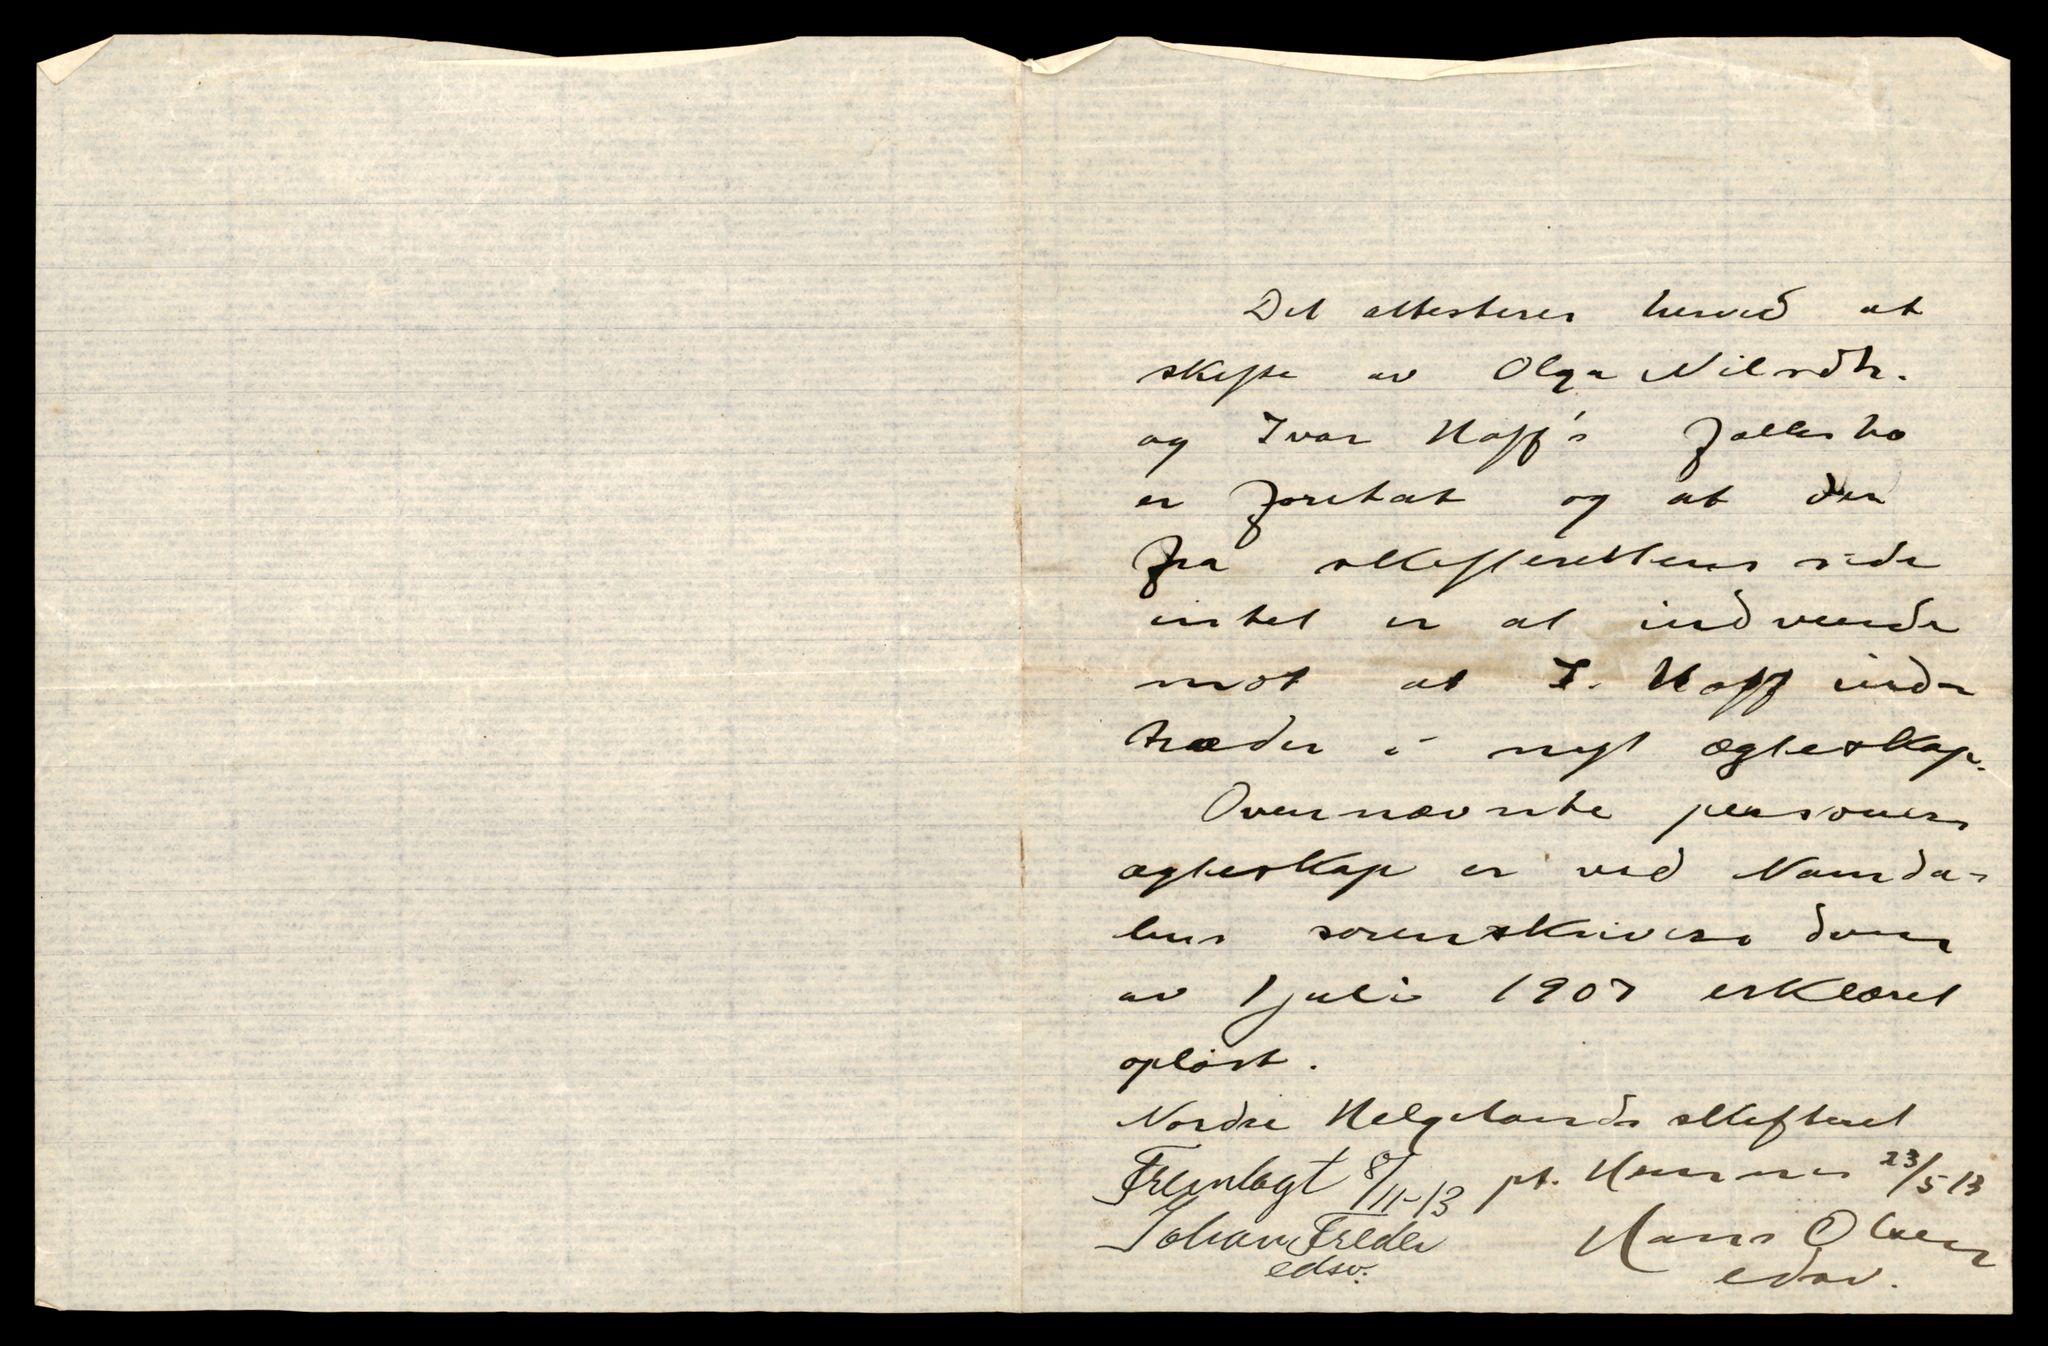 Det attesteres herved at
skifte av Olga Nilsdtr.
og Ivar Hoff's fællesbo
er foretat og at der
fra skifterettens side
intet er at indvende
mot at I. Hoff ind-
træder i nyt ægteskap.
Overnævnte personers
ægteskap er ved Namda-
lens sorenskrivers dom
av 1 juli 1907 erklæret
opløst.
Nordre Helgelands skifteret
pt. Hemnes 23/5 13
Hans Olsen
edsv.
Fremlagt 8/11-13
Johan
edsv.